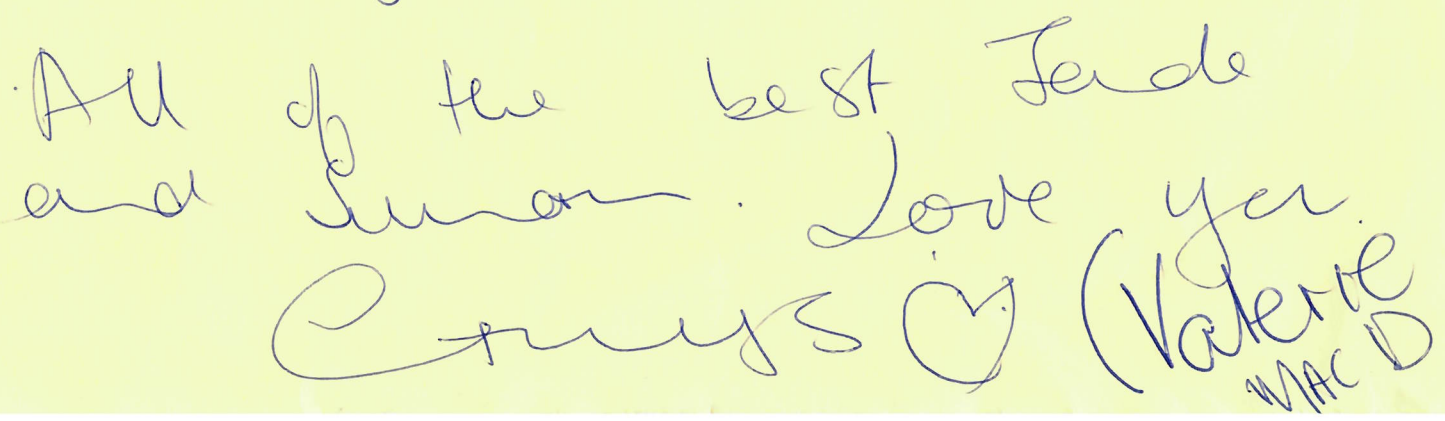 All of the best Jade
and Simon. Love you.
♡ (Valerie
MAC D